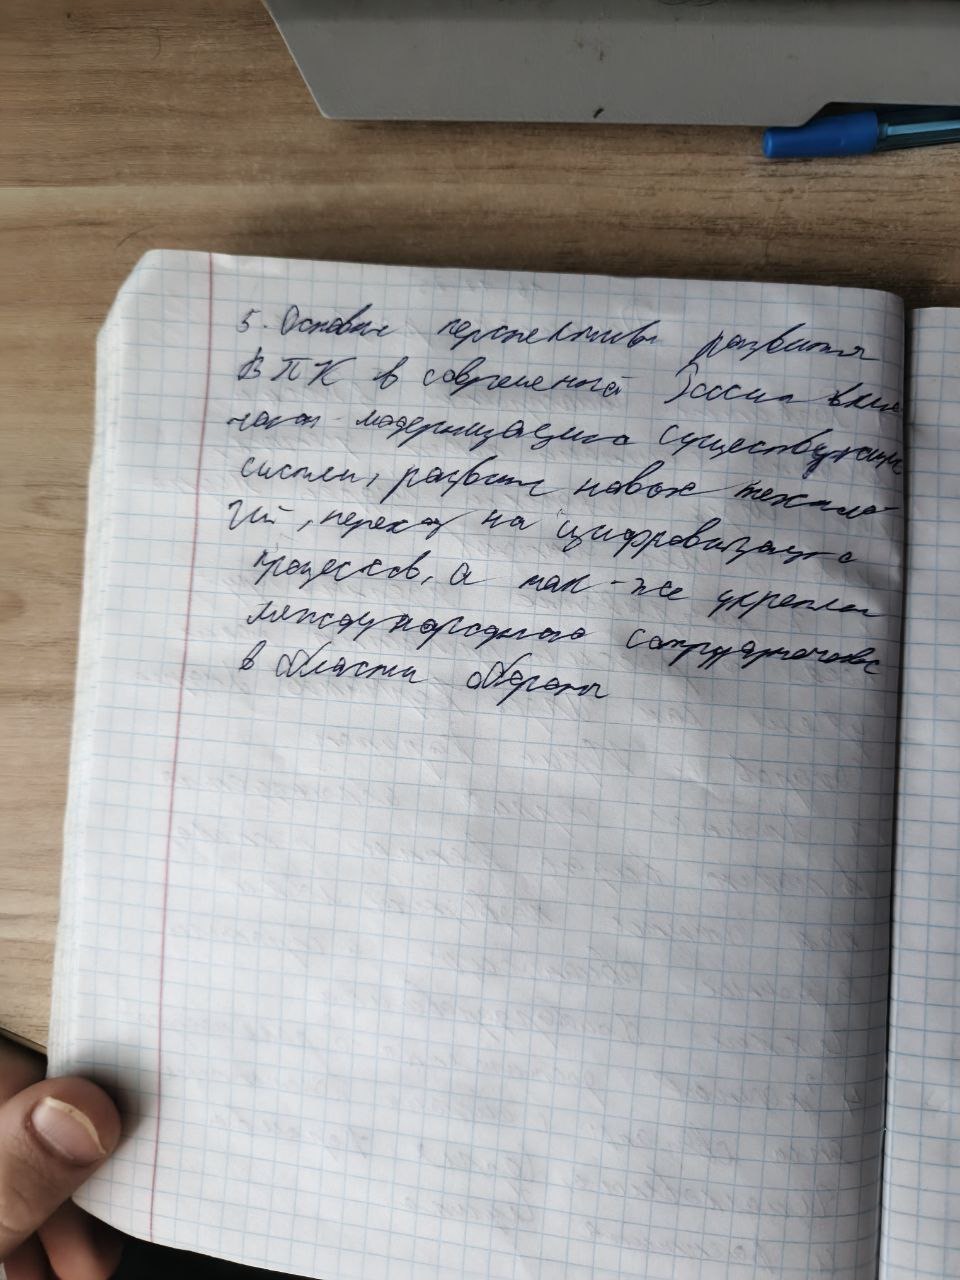 5. Основные перспективы развития
ВПК в современной России вклю-
чают модернизацию существующих
систем, развитие новых техноло-
гий, переход на цифровизацию
процессов, а так-же укрепление
международного сотрудничества
в области обороны